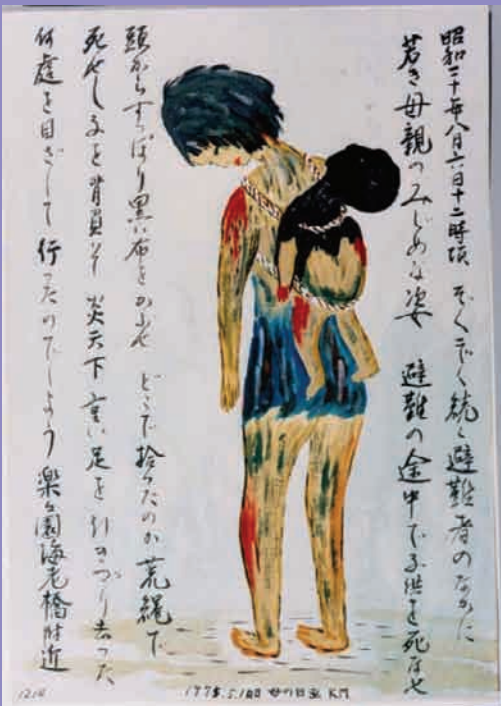 昭和二十年八月六日十二時頃 ぞくぞく続く避難者のなかに
若き母親のみじめな姿 避難の途中で子供を死なせ
頭からすっぽり黒い布をかぶせ どこで拾ったのか 荒縄で
死せし子を背負ひ 炎天下 重い足を引きずり去った
何處を目ざして 行ったのでしょう 楽々園海老橋附近
母の日 KM